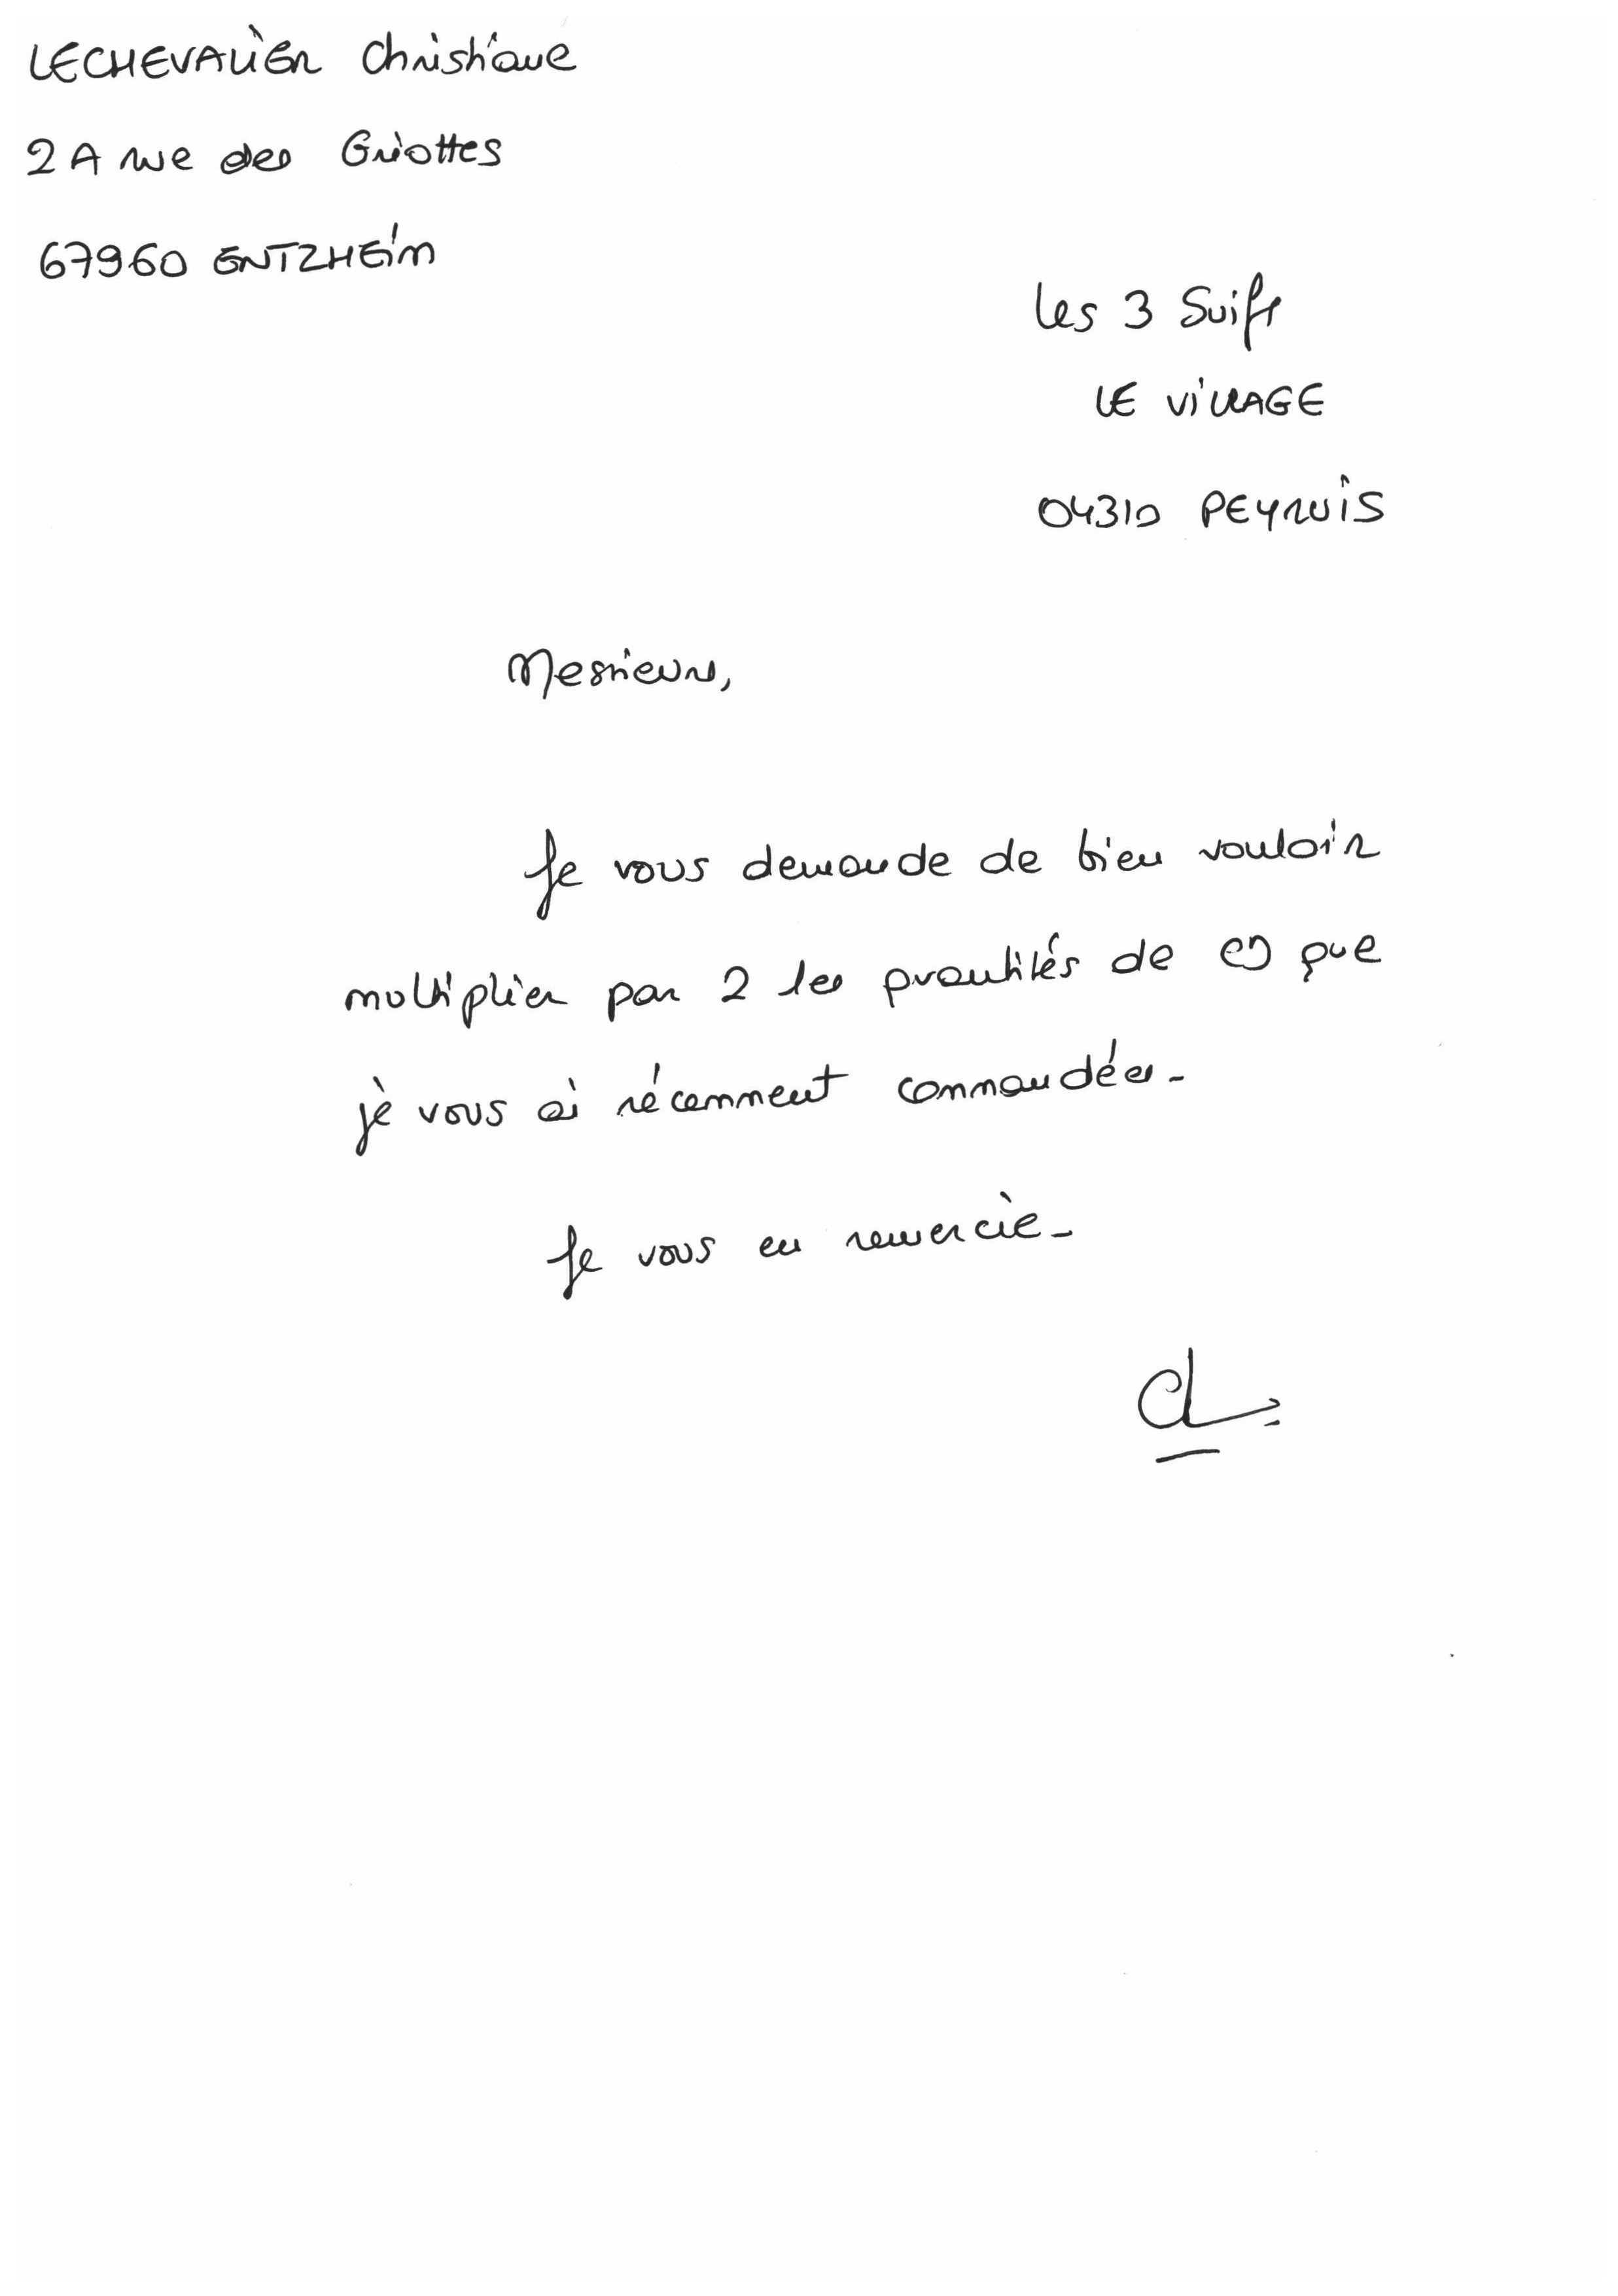 LECHEVALIER Christiane
2A rue des Griottes
67960 ENTZHEIM
Les 3 Suiff
LE VILLAGE
04310 PEYRUIS
Messieurs,
Je vous demande de bien vouloir
multiplier par 2 les quantités de CD que
je vous ai récemment commandées.
Je vous en remercie.
CL